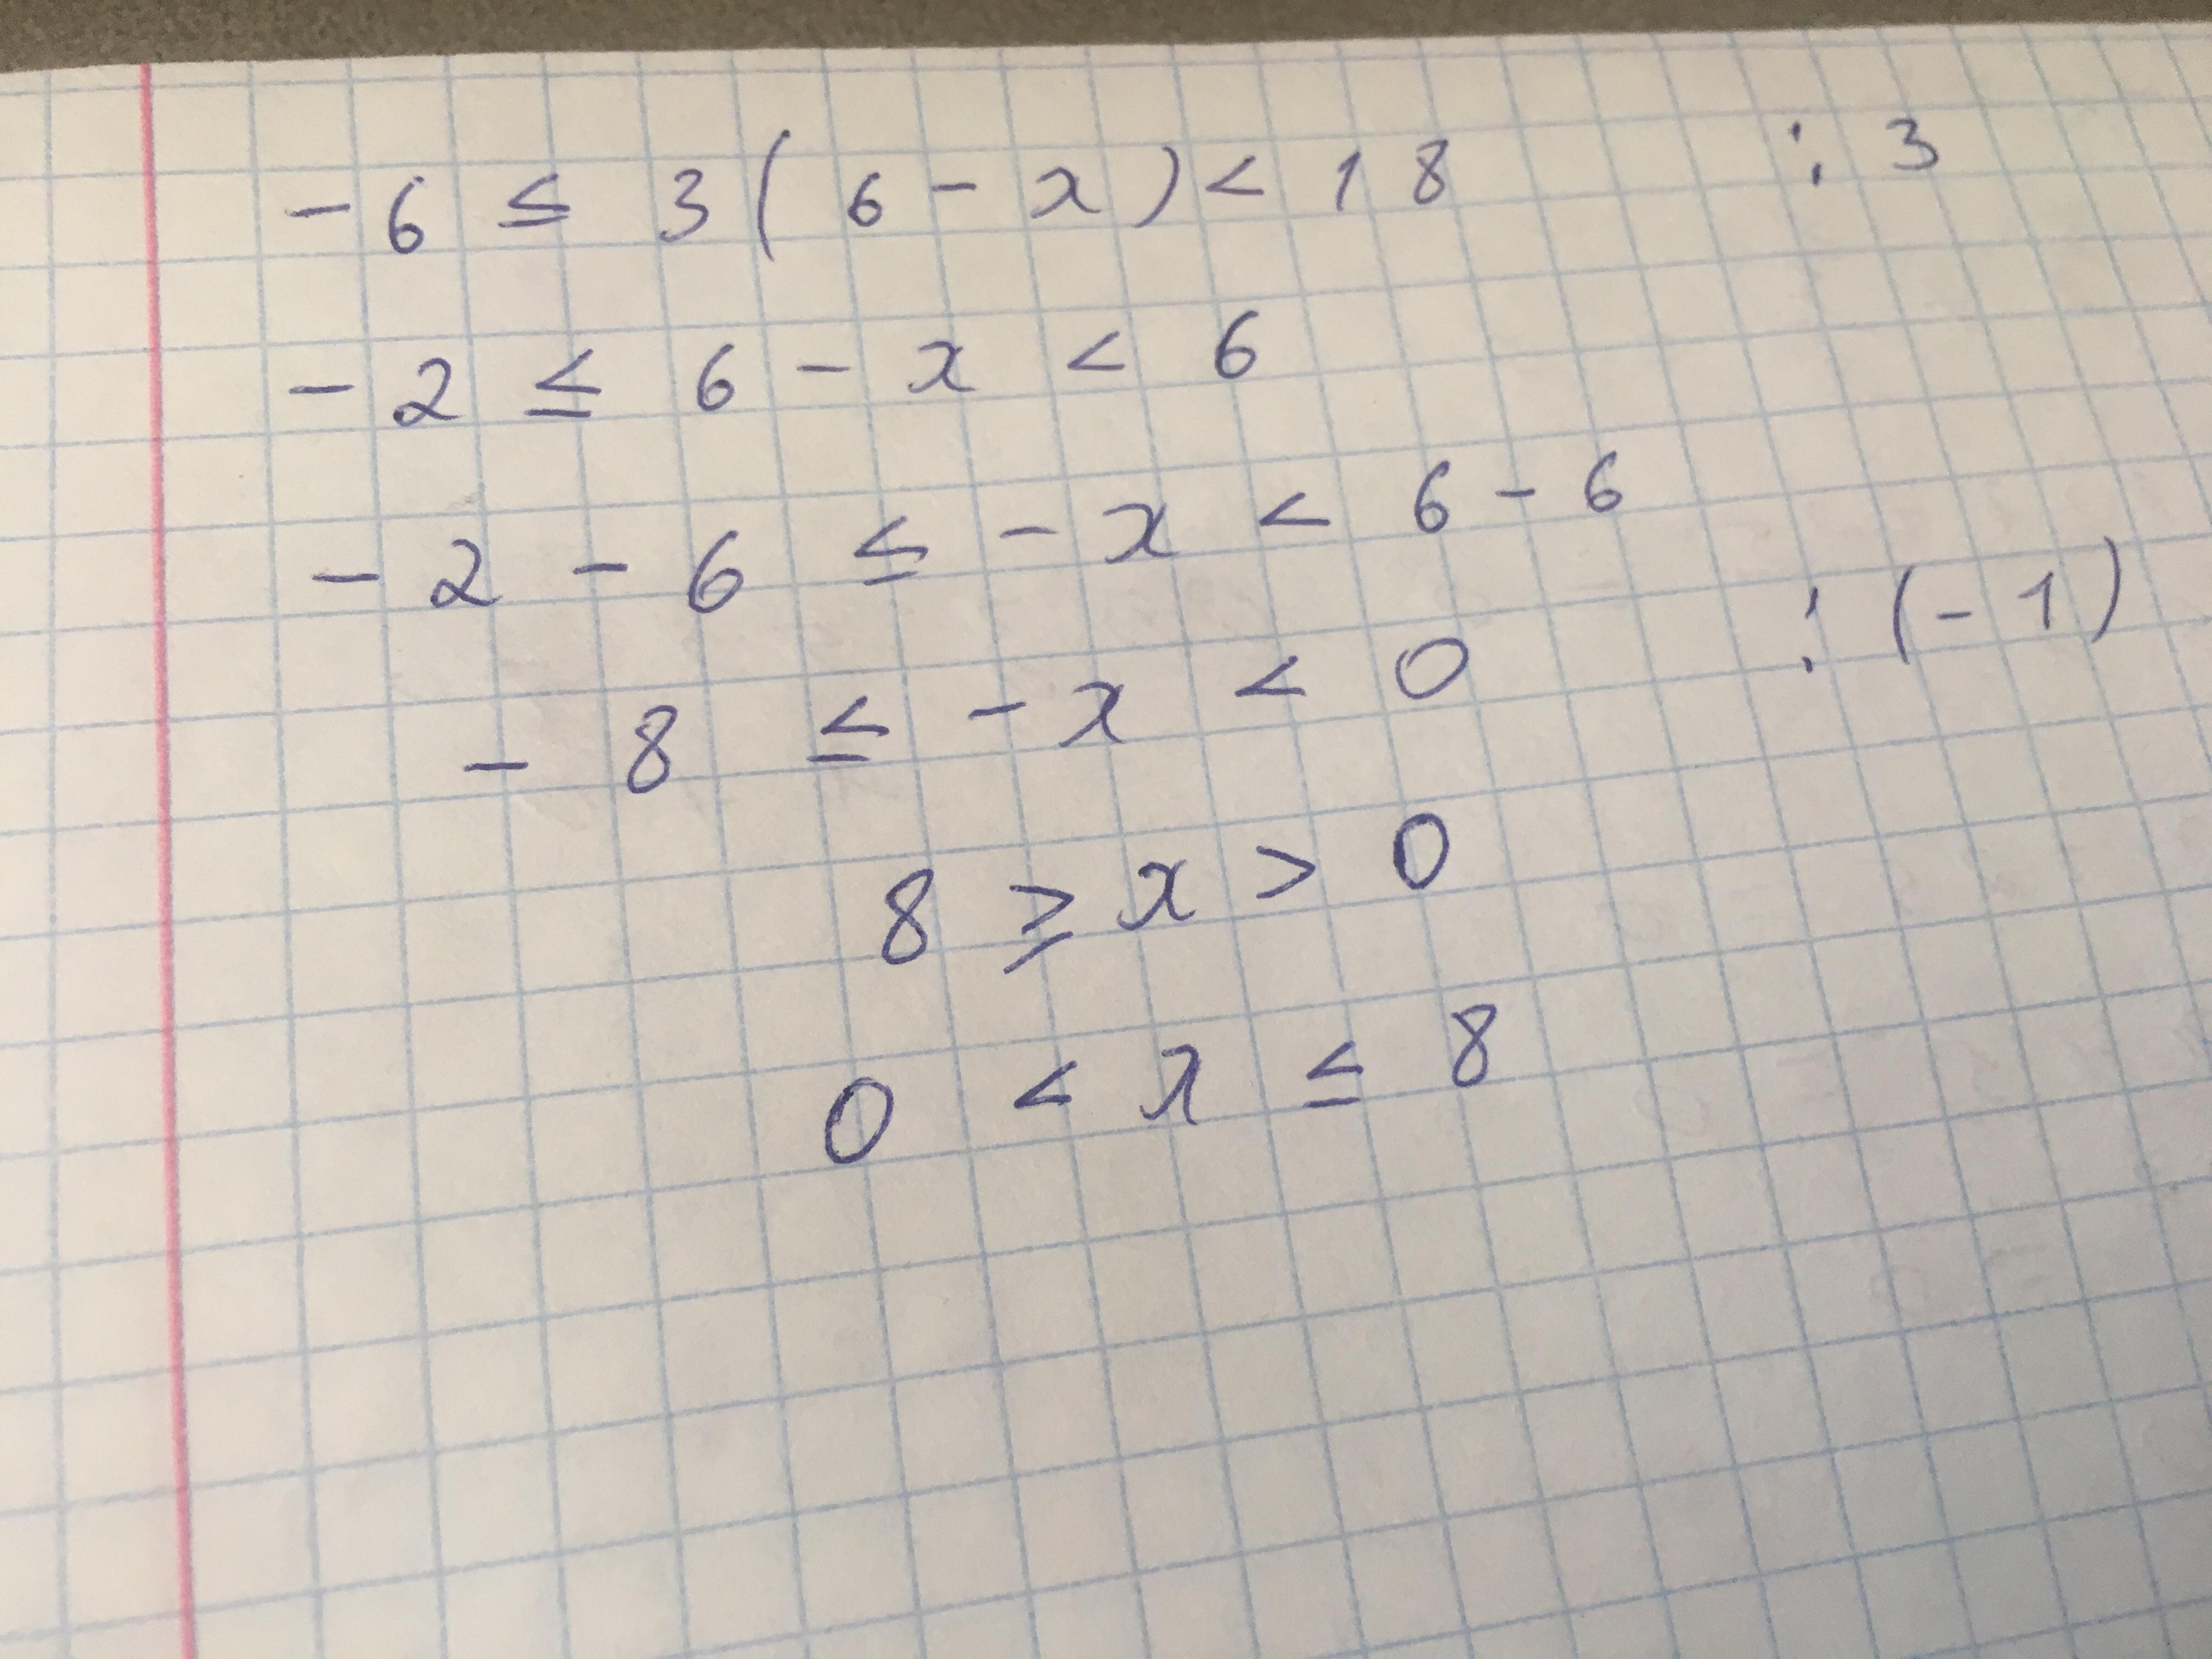 -6 ≤ 3(6-x)<18 : 3
-2 ≤ 6-x < 6
-2-6 ≤ -x < 6-6
-8 ≤ -x < 0 : (-1)
8 ≥ x > 0
0 < x ≤ 8